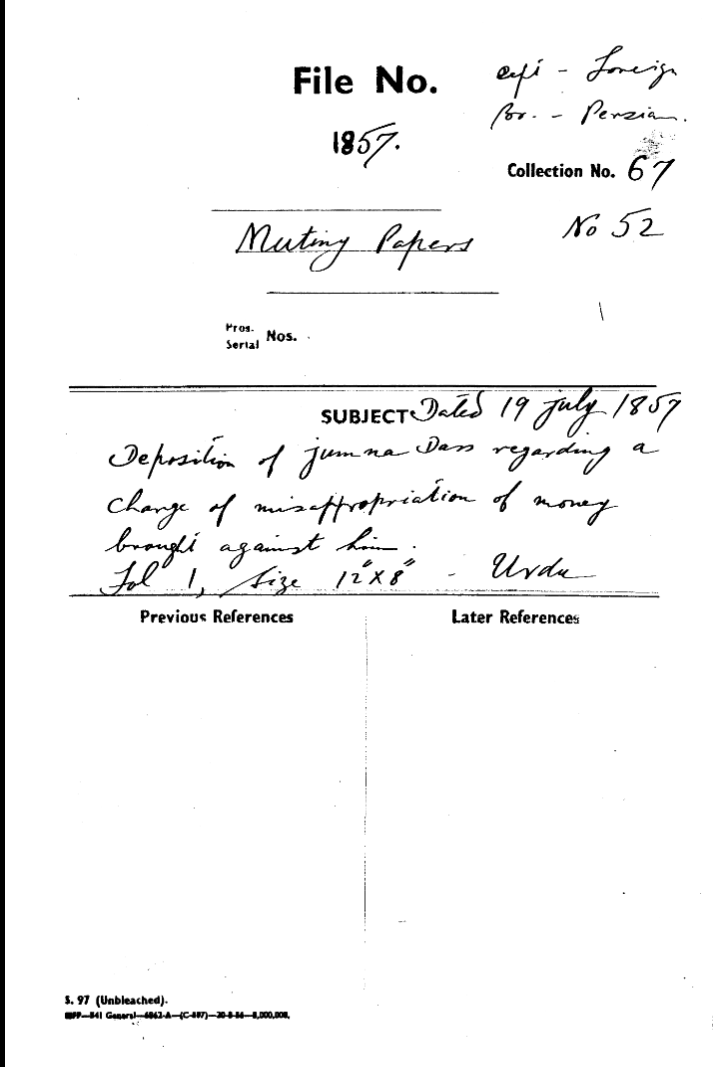 File No.
1857.
Depi - Foreign
Br. - Persian.
Collection No. 67
No 52
Mutiny Papers
Pros.
Serial Nos.
SUBJECT Dated 19 july 1857
Deposition of jumna Dass regarding a
charge of misappropriation of money
brought against him.
Fol 1, Size 12"X8" - Urdu
Previous References
Later References
S. 97 (Unbleached).